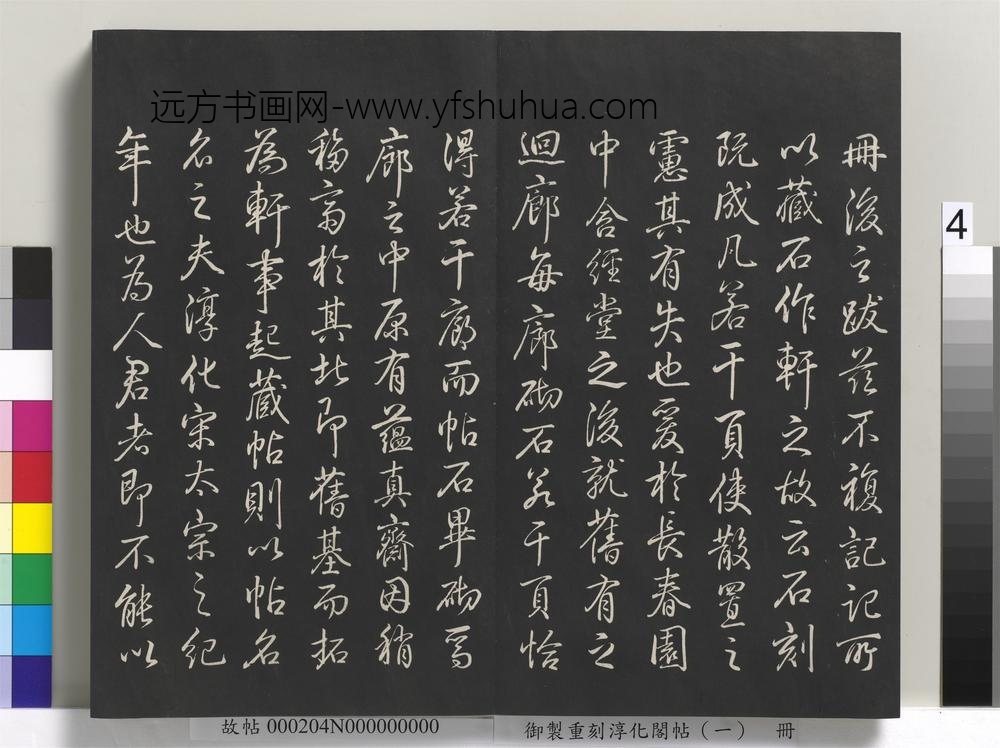 远方书画网-www.yfshuhua.com
冊後之跋茲不複記記所
以藏石作軒之故云石刻
既成凡若干頁使散置之
慮其有失也爰於長春園
中含經堂之後就舊有之
迴廊每廊砌石若干頁恰
得若干廊而帖石畢砌焉
廊之中原有蘊真齋因稍
移齋於其北即舊基而拓
為軒事起藏帖則以帖名
名之夫淳化宋太宗之紀
年也為人君者即不能以
4
故帖 000204N000000000
御製重刻淳化閣帖（一） 冊